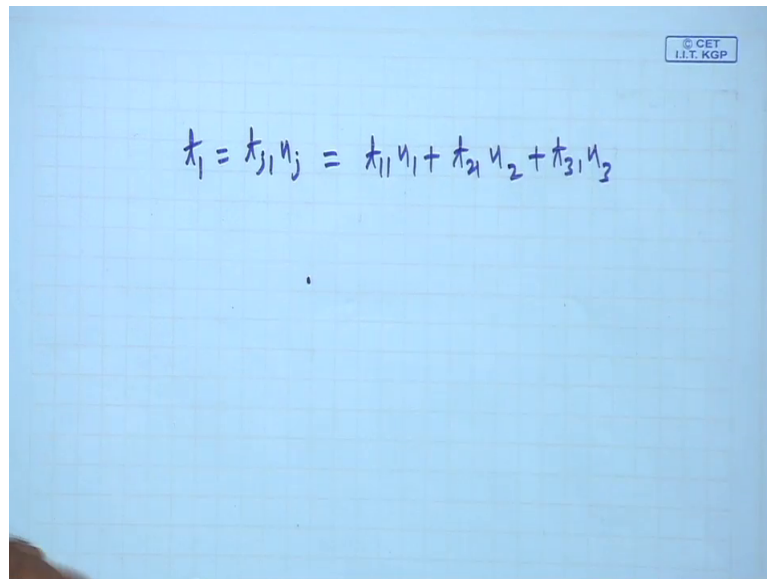 © CET
I.I.T. KGP
t₁ = tⱼ₁ nⱼ = t₁₁ n₁ + t₂₁ n₂ + t₃₁ n₃